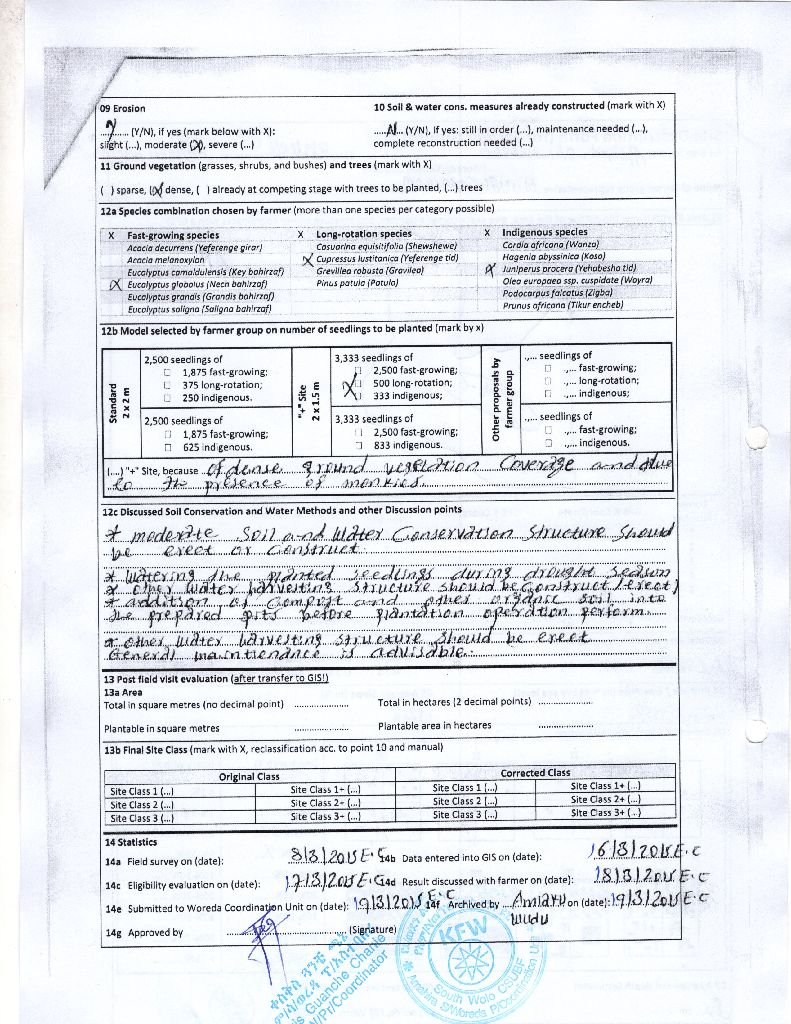 09 Erosion
10 Soil & water cons. measures already constructed (mark with X)
..Y..... (Y/N), if yes (mark below with X):
slight (...), moderate (X), severe (...)
.....N... (Y/N), If yes: still in order (...), maintenance needed (...),
complete reconstruction needed (...)
11 Ground vegetation (grasses, shrubs, and bushes) and trees (mark with X)
( ) sparse, (X) dense, ( ) already at competing stage with trees to be planted, (...) trees
12a Species combination chosen by farmer (more than one species per category possible)
X Fast-growing species
Acacia decurrens (Yeferenge girar)
Acacia melanoxylon
Eucalyptus camaldulensis (Key bahirzaf)
X Eucalyptus globolus (Nech bahirzaf)
Eucalyptus grandis (Grandis bahirzaf)
Eucalyptus saligna (Saligna bahirzaf)
X Long-rotation species
Casuarina equisitifolia (Shewshewe)
X Cupressus lusitanica (Yeferenge tid)
Grevillea robusta (Gravilea)
Pinus patula (Patula)
X Indigenous species
Cordia africana (Wanza)
Hagenia abyssinica (Koso)
X Juniperus procera (Yehabesha tid)
Olea europaea ssp. cuspidate (Woyra)
Podocarpus falcatus (Zigba)
Prunus africana (Tikur encheb)
12b Model selected by farmer group on number of seedlings to be planted (mark by x)
Standard
2 x 2 m
2,500 seedlings of
☐ 1,875 fast-growing;
☐ 375 long-rotation;
☐ 250 indigenous.
2,500 seedlings of
☐ 1,875 fast-growing;
☐ 625 indigenous.
"+" Site
2 x 1.5 m
3,333 seedlings of
☐ 2,500 fast-growing;
X 500 long-rotation;
☐ 333 indigenous;
3,333 seedlings of
☐ 2,500 fast-growing;
☐ 833 indigenous.
Other proposals by
farmer group
.,... seedlings of
☐ .,... fast-growing;
☐ .,... long-rotation;
☐ .,... indigenous;
.,... seedlings of
☐ .,... fast-growing;
☐ .,... indigenous.
(...) "+" Site, because of dense ground vegetation Coverage and due
to the presence of monkies.
12c Discussed Soil Conservation and Water Methods and other Discussion points
* moderate Soil and Water Conservation Structure Should
be erect or Construct.
* Watering the planted seedlings during drought season
* other water harvesting structure should be Construct (erect)
* addition of Compost and other organic soil into
the prepared pits before plantation operation perform.
* other water harvesting structure should be erect
General maintienance is advisable.
13 Post field visit evaluation (after transfer to GIS!)
13a Area
Total in square metres (no decimal point) ....................
Total in hectares (2 decimal points) ....................
Plantable in square metres ....................
Plantable area in hectares ....................
13b Final Site Class (mark with X, reclassification acc. to point 10 and manual)
Original Class
Corrected Class
Site Class 1 (...) Site Class 1+ (...) Site Class 1 (...) Site Class 1+ (...)
Site Class 2 (...) Site Class 2+ (...) Site Class 2 (...) Site Class 2+ (...)
Site Class 3 (...) Site Class 3+ (...) Site Class 3 (...) Site Class 3+ (..)
14 Statistics
14a Field survey on (date): 8/3/2015 E.C
14b Data entered into GIS on (date): 16/3/2015 E.C
14c Eligibility evaluation on (date): 17/3/2015 E.C
14d Result discussed with farmer on (date): 18/3/2015 E.C
14e Submitted to Woreda Coordination Unit on (date): 19/3/2015 E.C
14f Archived by Amare Wudu on (date): 19/3/2015 E.C
14g Approved by .................... (Signature)
Guanche Chanie
Pr/Coordinator
KFW
South Wolo CSUBF